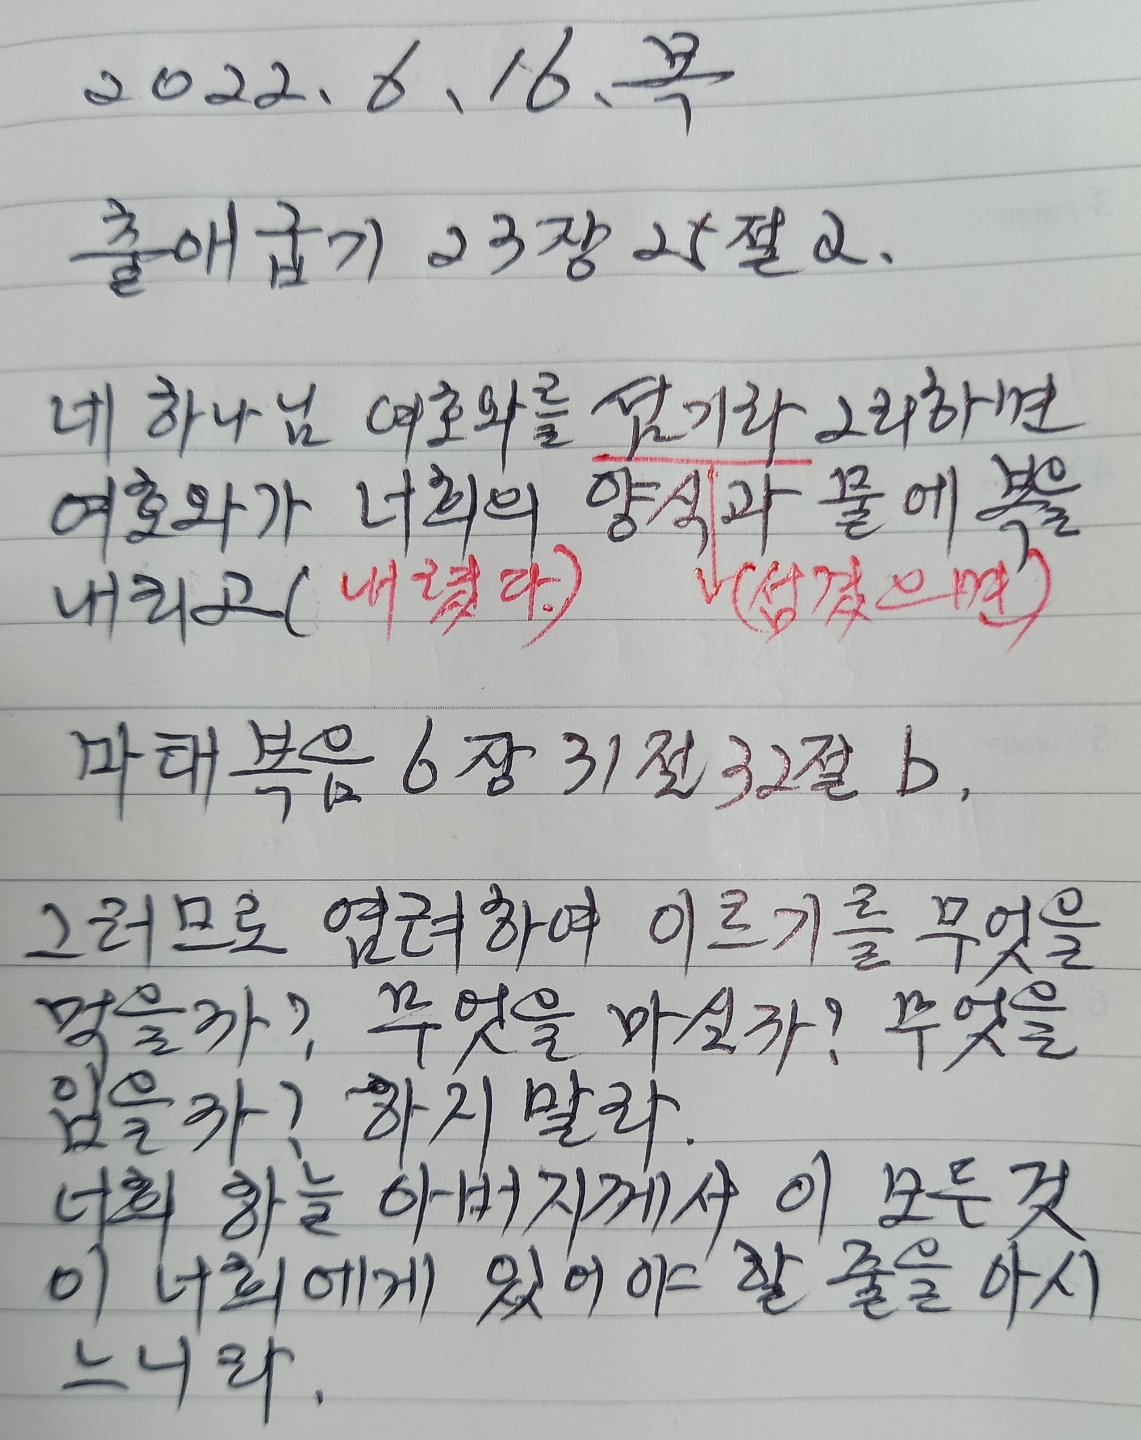 2022. 6. 16. 목
출애굽기 23장 25절 a.
네 하나님 여호와를 섬기라 그리하면
여호와가 너희의 양식과 물에 복을
내리고 (내렸다.) (섬겼으면)
마태복음 6장 31절 32절 b.
그러므로 염려하여 이르기를 무엇을
먹을까? 무엇을 마실까? 무엇을
입을까? 하지 말라.
너희 하늘 아버지께서 이 모든것
이 너희에게 있어야 할 줄을 아시
느니라.